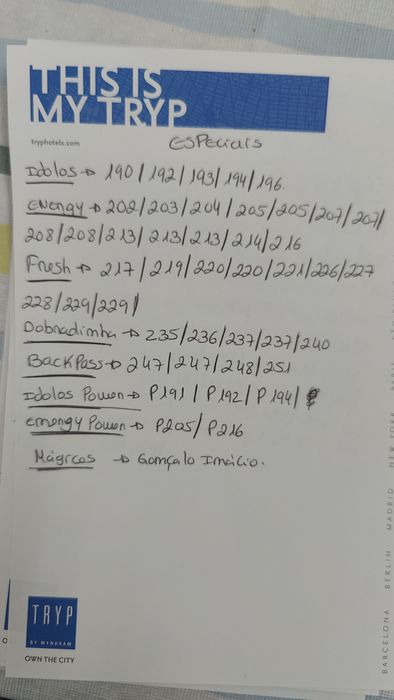 THIS IS
MY TRYP
tryphotels.com
ESPECIAIS
Idolos → 190 / 192 / 193 / 194 / 196.
ENergy → 202 / 203 / 204 / 205 / 205 / 207 / 207 /
208 / 208 / 213 / 213 / 213 / 214 / 216
Fresh → 217 / 219 / 220 / 220 / 221 / 226 / 227
228 / 229 / 229 /
Dobradinha → 235 / 236 / 237 / 237 / 240
BackPass → 247 / 247 / 248 / 251
Idolos Power → P191 / P192 / P194 /
Energy Power → P205 / P216
Mágicos → Gonçalo Inácio.
TRYP
BY WYNDHAM
OWN THE CITY
BARCELONA BERLIN MADRID NEW YORK